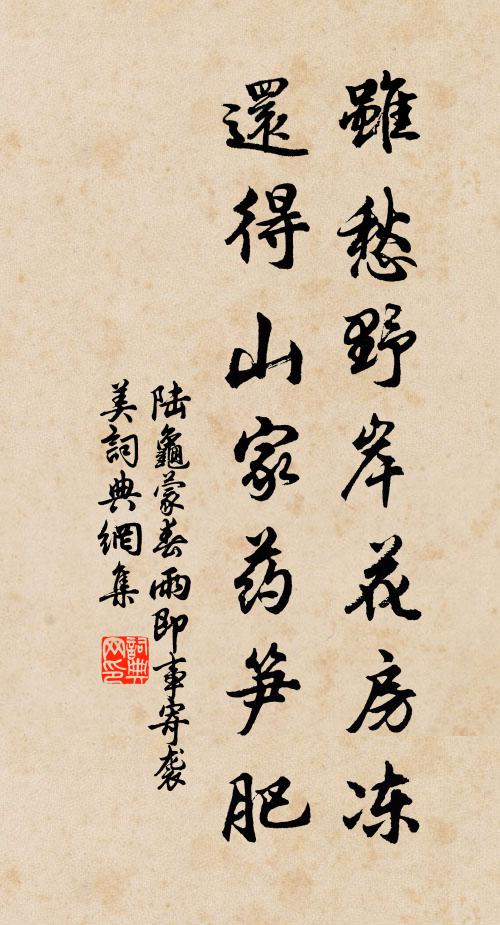 雖愁野岸花房冻
還得山家药笋肥
陆龜蒙春雨即事寄袭
美詞典網集
詞典
网印